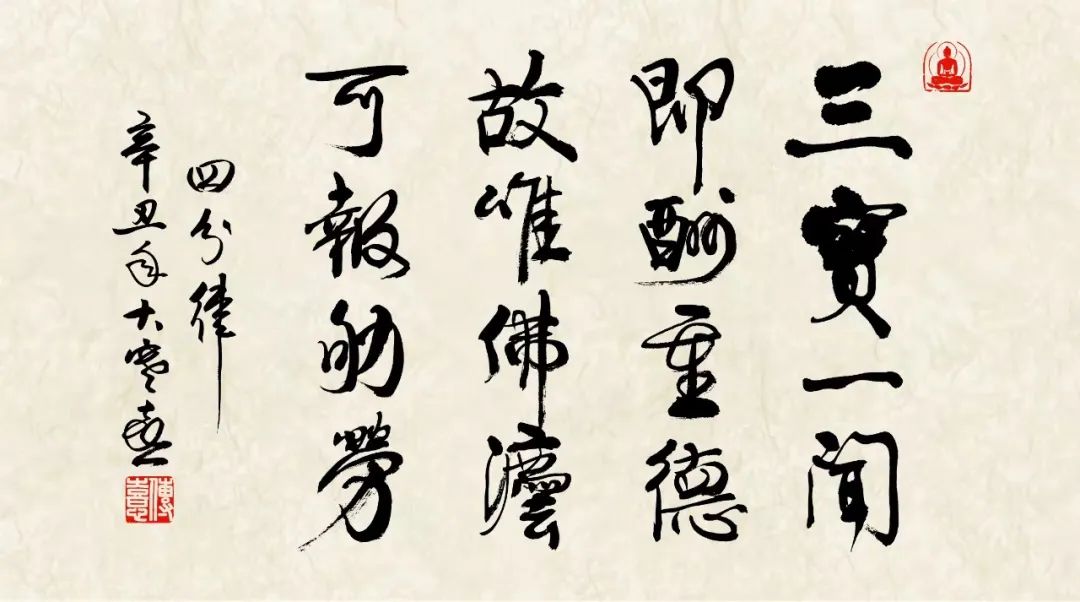 三寶一聞
即酬重德
故唯佛灋
可報劬勞
四分律
辛丑年大寒喜
傳憙